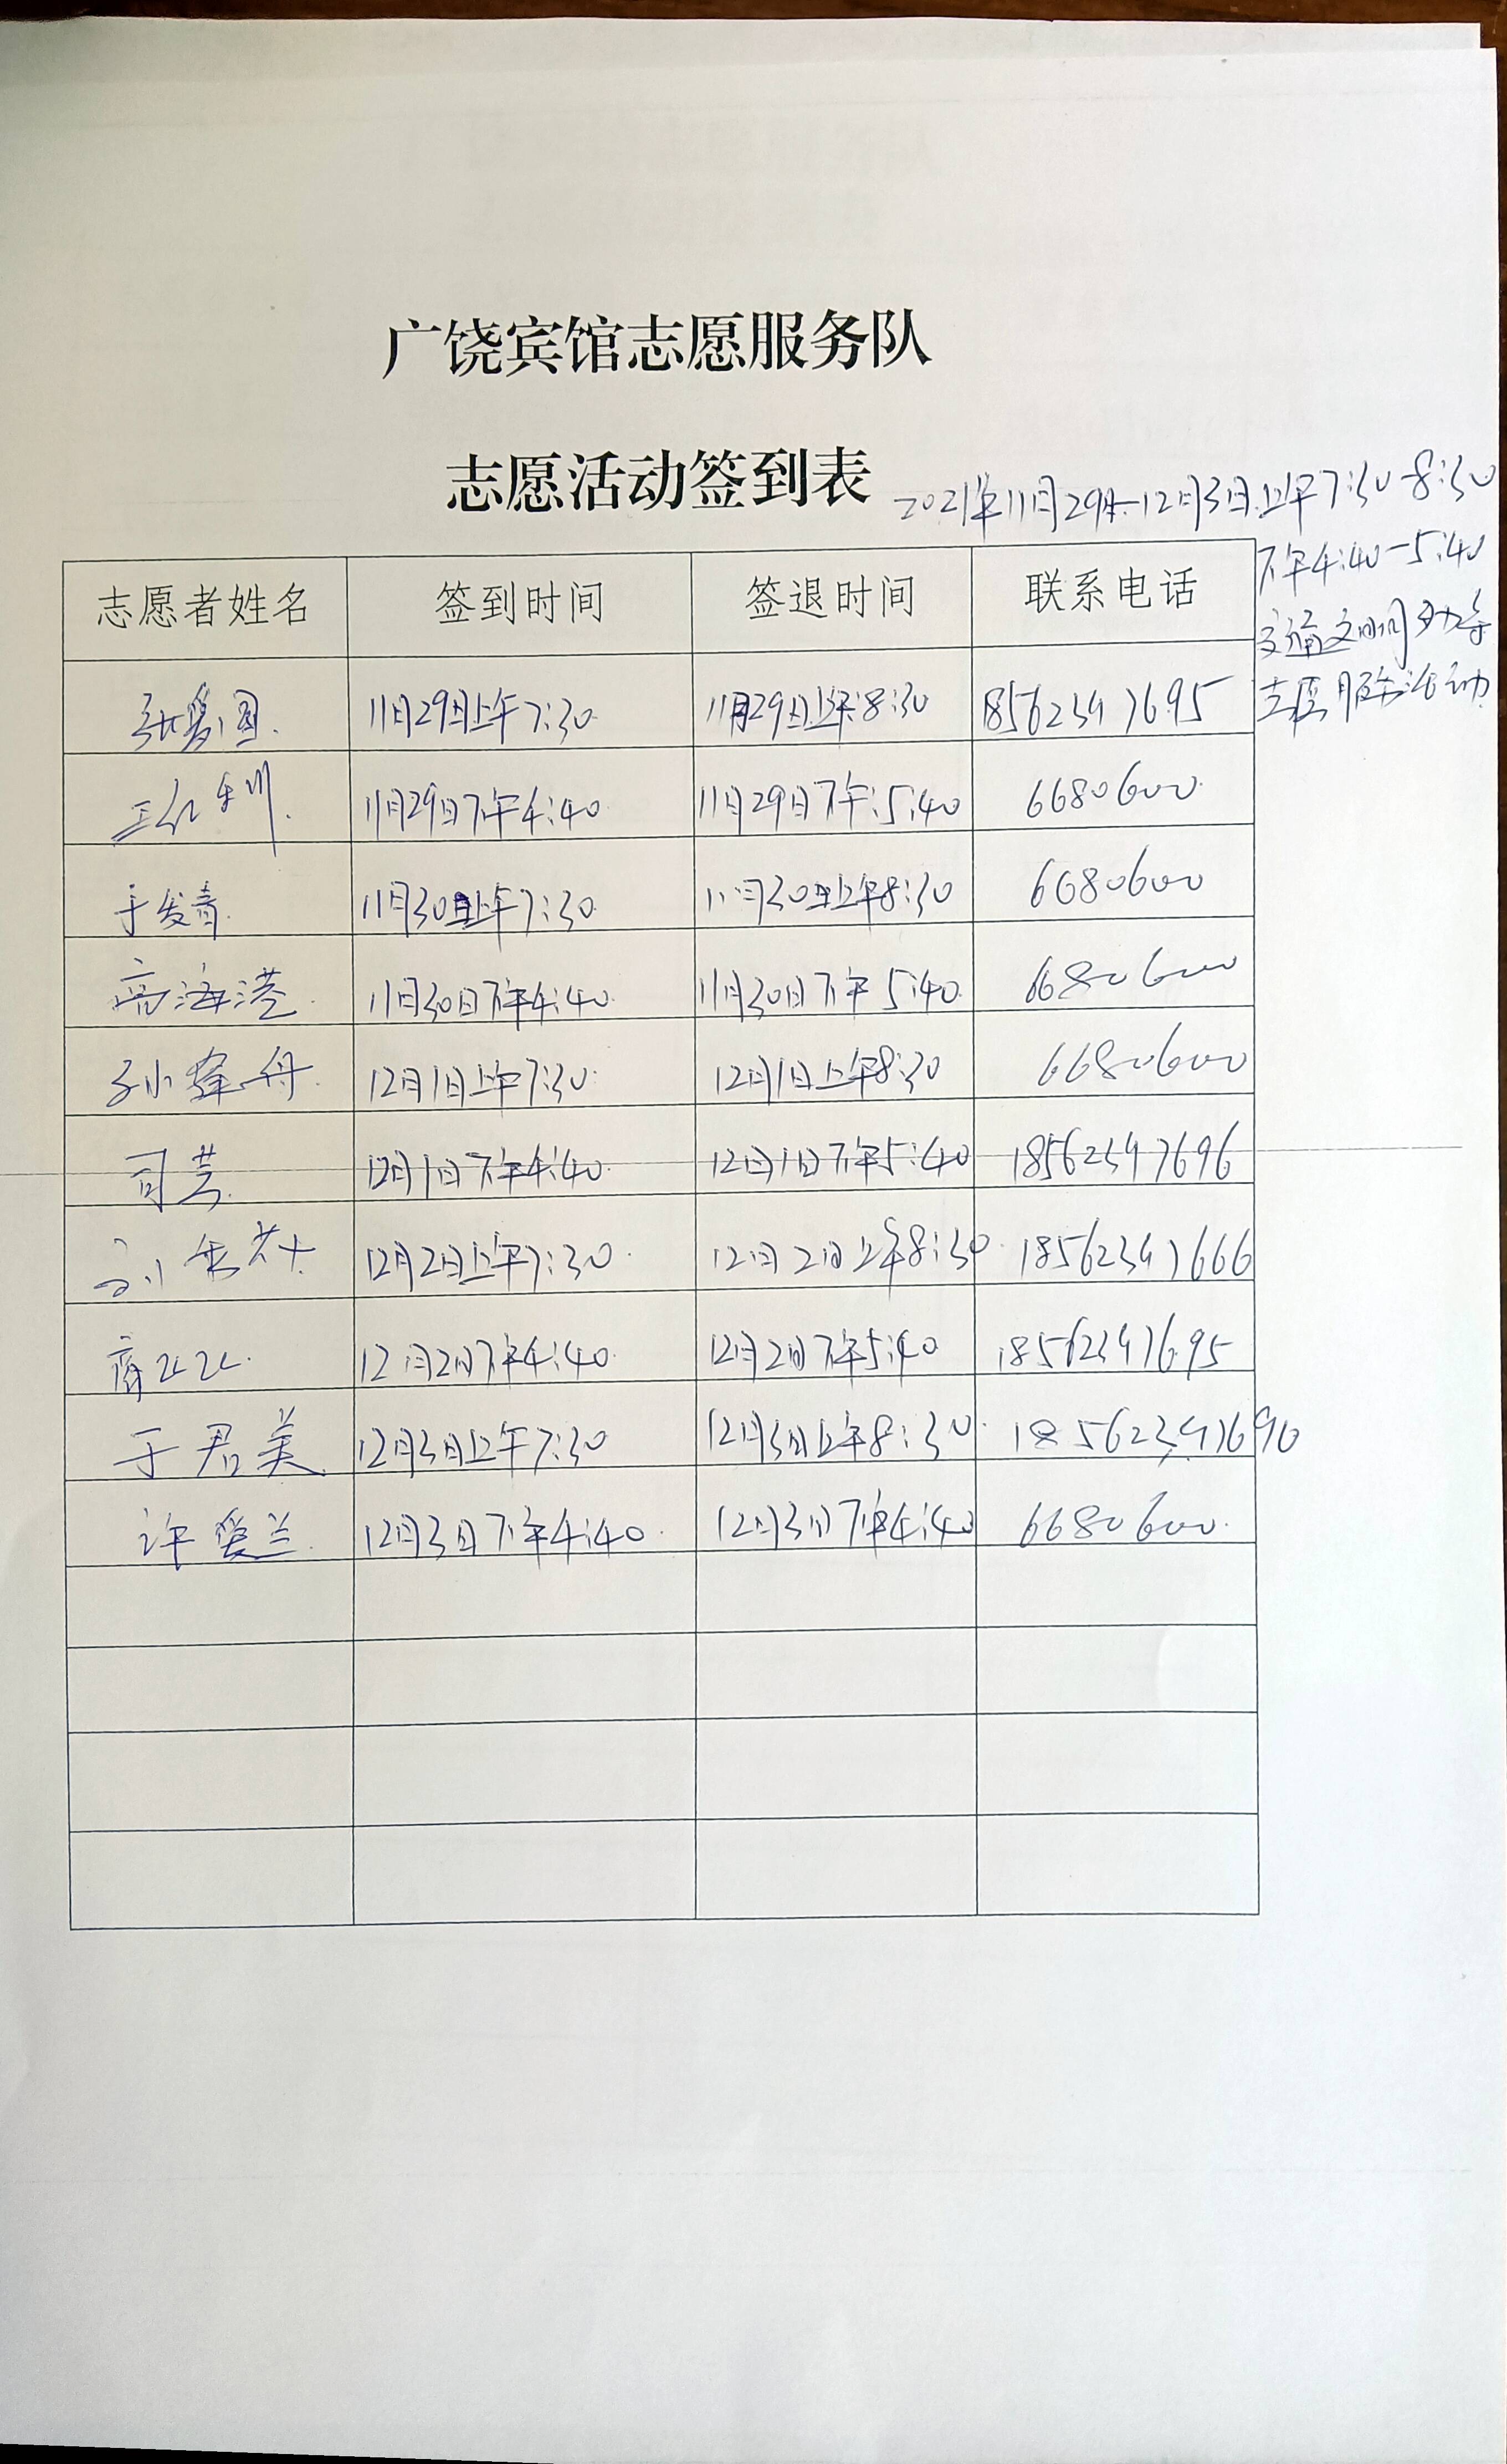 广饶宾馆志愿服务队
志愿活动签到表
2021年11月29日-12月3日上午7:30-8:30
下午4:40-5:40
交通文明劝导
志愿服务活动
志愿者姓名 签到时间 签退时间 联系电话
11月29日上午7:30 11月29日上午8:30 18562347695
11月29日下午4:40 11月29日下午5:40 6680600
于发青 11月30日上午7:30 11月30日上午8:30 6680600
高海港 11月30日下午4:40 11月30日下午5:40 6680600
12月1日上午7:30 12月1日上午8:30 6680600
司芸 12月1日下午4:40 12月1日下午5:40 18562347696
12月2日上午7:30 12月2日上午8:30 18562347666
12月2日下午4:40 12月2日下午5:40 18562347695
于君美 12月3日上午7:30 12月3日上午8:30 18562347690
许爱兰 12月3日下午4:40 12月3日下午4:40 6680600